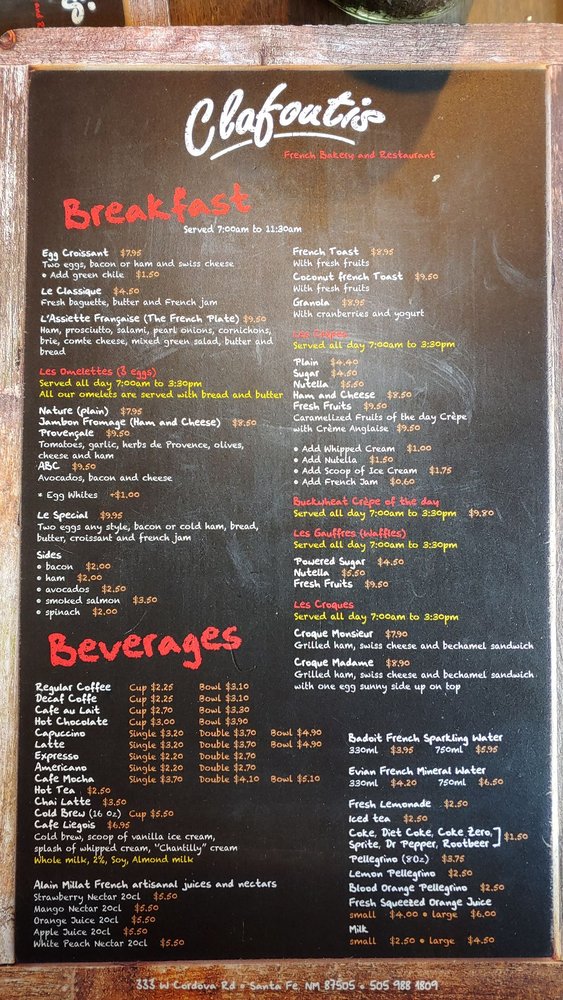 Clafoutis
French Bakery and Restaurant
Breakfast
Served 7:00am to 11:30am
Egg Croissant $7.95
Two eggs, bacon or ham and swiss cheese
• Add green chile $1.50
Le Classique $4.50
Fresh baguette, butter and French jam
L'Assiette Française (The French Plate) $9.50
Ham, prosciutto, salami, pearl onions, cornichons,
brie, comte cheese, mixed green salad, butter and
bread
Les Omelettes (3 eggs)
Served all day 7:00am to 3:30pm
All our omelets are served with bread and butter
Nature (plain) $7.95
Jambon Fromage (Ham and Cheese) $8.50
Provençale $9.50
Tomatoes, garlic, herbs de Provence, olives,
cheese and ham
ABC $9.50
Avocados, bacon and cheese
* Egg Whites +$1.00
Le Special $9.95
Two eggs any style, bacon or cold ham, bread,
butter, croissant and french jam
Sides
• bacon $2.00
• ham $2.00
• avocados $2.50
• smoked salmon $3.50
• spinach $2.00
French Toast $8.95
With fresh fruits
Coconut french Toast $9.50
With fresh fruits
Granola $8.95
With cranberries and yogurt
Les Crêpes
Served all day 7:00am to 3:30pm
Plain $4.40
Sugar $4.50
Nutella $5.50
Ham and Cheese $8.50
Fresh Fruits $9.50
Caramelized Fruits of the day Crêpe
with Crème Anglaise $9.50
• Add Whipped Cream $1.00
• Add Nutella $1.50
• Add Scoop of Ice Cream $1.75
• Add French Jam $0.60
Buckwheat Crêpe of the day
Served all day 7:00am to 3:30pm $9.80
Les Gauffres (Waffles)
Served all day 7:00am to 3:30pm
Powered Sugar $4.50
Nutella $5.50
Fresh Fruits $9.50
Les Croques
Served all day 7:00am to 3:30pm
Croque Monsieur $7.90
Grilled ham, swiss cheese and bechamel sandwich
Croque Madame $8.90
Grilled ham, swiss cheese and bechamel sandwich
with one egg sunny side up on top
Beverages
Regular Coffee Cup $2.25 Bowl $3.10
Decaf Coffe Cup $2.25 Bowl $3.10
Cafe au Lait Cup $2.70 Bowl $3.30
Hot Chocolate Cup $3.00 Bowl $3.90
Capuccino Single $3.20 Double $3.70 Bowl $4.90
Latte Single $3.20 Double $3.70 Bowl $4.90
Expresso Single $2.20 Double $2.70
Americano Single $2.20 Double $2.70
Cafe Mocha Single $3.70 Double $4.10 Bowl $5.10
Hot Tea $2.50
Chai Latte $3.50
Cold Brew (16 Oz) Cup $5.50
Cafe Liegois $6.95
Cold brew, scoop of vanilla ice cream,
splash of whipped cream, "Chantilly" cream
Whole milk, 2%, Soy, Almond milk
Alain Millat French artisanal juices and nectars
Strawberry Nectar 20cl $5.50
Mango Nectar 20cl $5.50
Orange Juice 20cl $5.50
Apple Juice 20cl $5.50
White Peach Nectar 20cl $5.50
Badoit French Sparkling Water
330ml $3.95 750ml $5.95
Evian French Mineral Water
330ml $4.20 750ml $6.50
Fresh Lemonade $2.50
Iced tea $2.50
Coke, Diet Coke, Coke Zero,
Sprite, Dr Pepper, Rootbeer $1.50
Pellegrino (8Oz) $3.75
Lemon Pellegrino $2.50
Blood Orange Pellegrino $2.50
Fresh Squeezed Orange Juice
small $4.00 • large $6.00
Milk
small $2.50 • large $4.50
333 W Cordova Rd • Santa Fe, NM 87505 • 505 988 1809